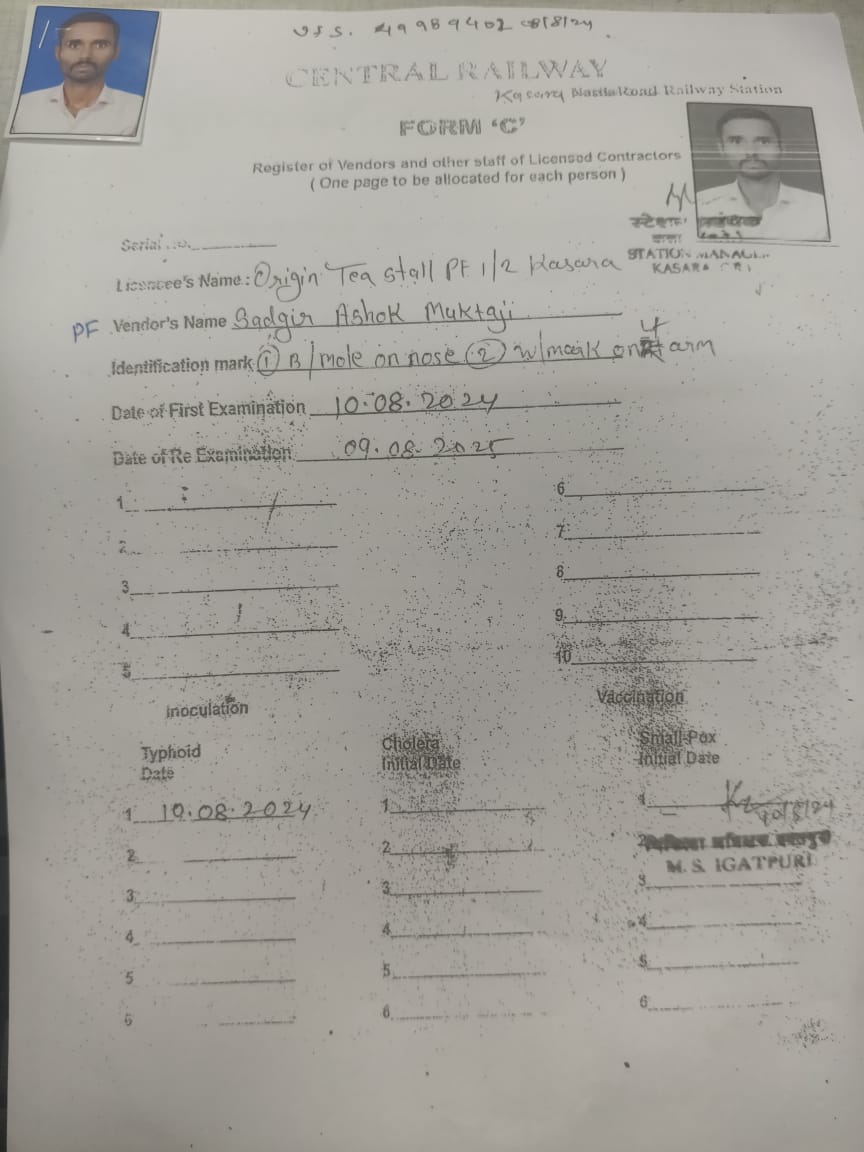 VSS. 49989402 8/8/24
CENTRAL RAILWAY
Kasara Nasik Road Railway Station
FORM 'C'
Register of Vendors and other staff of Licensed Contractors
( One page to be allocated for each person )
स्टेशन
STATION MANAGER
KASARA
Serial No.
Licencee's Name : Origin Tea Stall PF 1/2 Kasara
PF Vendor's Name Sadgir Ashok Muktaji
Identification mark ① B/mole on nose ② w/mark on arm
Date of First Examination 10.08.2024
Date of Re Examination 09.08.2025
1 6
2 7
3 8
4 9
5 10
Inoculation Vaccination
Typhoid Cholera Small-Pox
Date Initial Date Initial Date
1 10.08.2024 1 1 10/8/24
2 2 2
M. S. IGATPURI
3 3 3
4 4 4
5 5 5
6 6 6